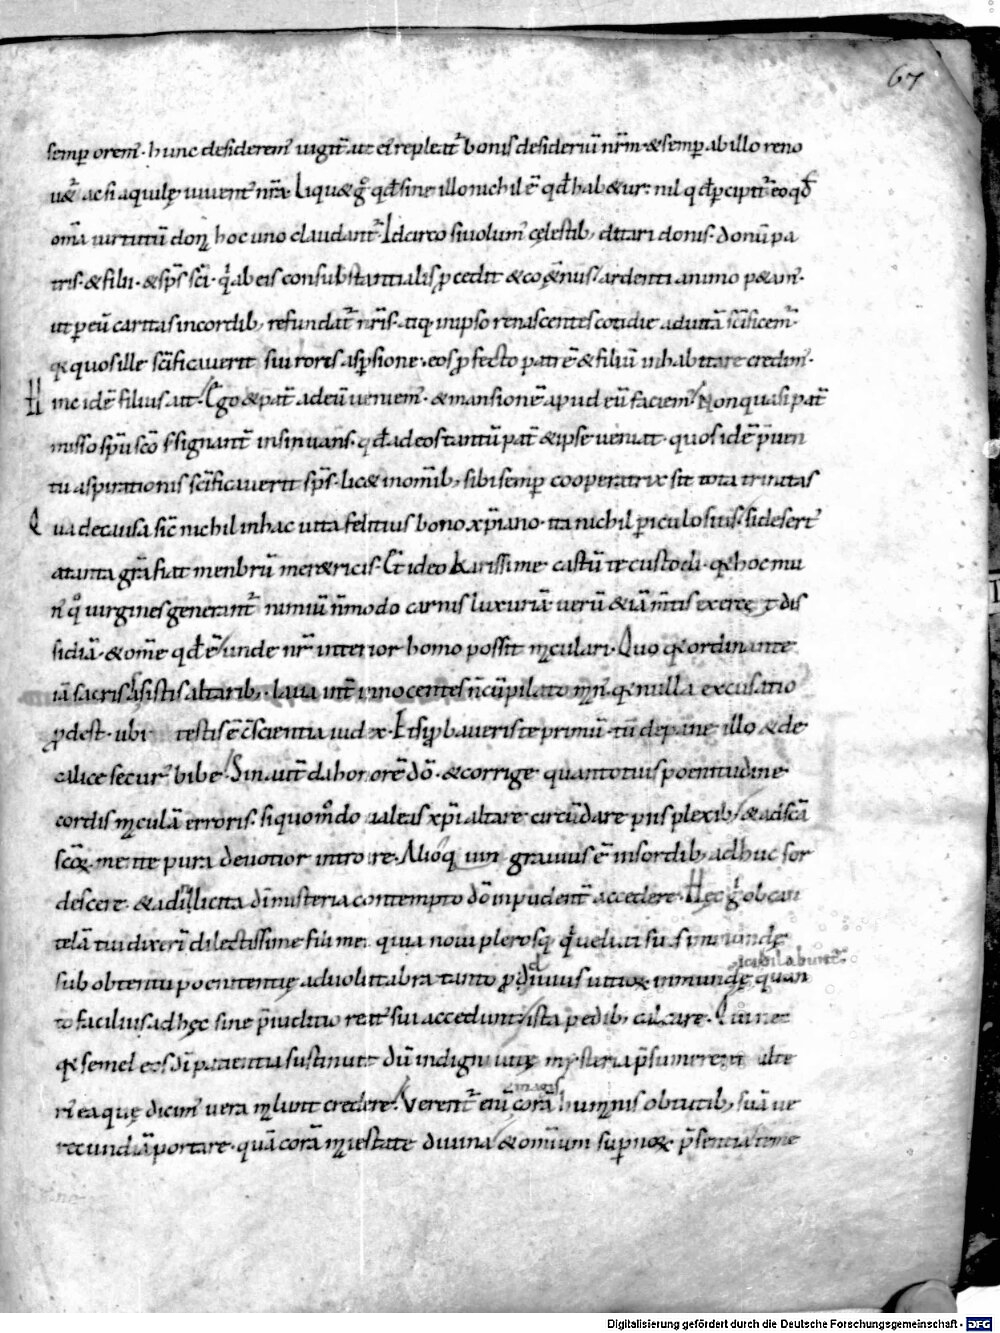 67
semp orem̄· hunc desiderem̄ iugit̄ ut eī repleat̄ bonis desideriū nr̄m· & semp ab illo reno
u&̄ ac si aquilę iuvent̄ nr̄a· Liqu& g̊ qđ sine illo nichil ē qđ hab&ur· nil qđ pcipit̄ eo qđ
om̄a uirtutū donꝝ hoc uno claudant̄· Idcirco si uolum̄ cęlestib; ditari donis· donū pa
tris· & filii· & sps̄ sc̄i· q̇ ab eis consubstantialis pcedit & coęt̄nus· ardenti animo p&am̄·
ut p eū caritas in cordib; refundat̄ nr̄is· atq; in ipso renascentes cotidie ad uitā sc̄ificem̄·
quos ille sc̄ificauerit sui roris aspsione· eos pfecto patrē & filiū inhabitare credim̄·
Hinc idē filius ait· Ego & pat̄ ad eū ueniem̄· & mansionē apud eū faciem̄· Non quasi pat̄
misso spū sc̄o significant̄ insinuans· qđ ad eos tantū pat̄ & ipse ueniat· quos idē p̄uen
tu aspirationis sc̄ificauerit sps̄· lic& in om̄ib; sibi semp cooperatrix sit tota trinitas
Qua de causa sic̄ nichil in hac uita felitius bono xp̄iano· ita nichil piculosius· si desert̄
a tanta grā fiat menbrū mer&ricis· Et ideo karissime castū te custodi· hoc mu
n̄ q̊ uirgines generant̄ nimiū n̄ modo carnis luxuriā uerū & iā m̄tis exerce t dis
sidiā· & om̄e qđ ē unde nr̄ interior homo possit maculari· Quo ordinante
iā sacris assistis altarib; laua int̄ innocentes n̄ cū pilato man̄· nulla excusatio
pdest· ubi testis ē c̄scientia iudex· Et si pbaueris te primū· tū de pane illo & de
calice secur̄ bibe· Sin aut̄ da honorē dō· & corrige quantotius poenitudine
cordis maculā erroris· si quom̊do ualeas xp̄i altare circūdare piis plexib; & ad sc̄ā
sc̄oꝝ mente pura deuotior introire· Alioq̇uin grauius ē in sordib; adhuc sor
descere & ad illicita dī misteria contempto dō inpudent̄ accedere· Hęc g̊ ob cau
telā tui dixerī dilectissime fili mei quia noui plerosq; q̇ uelut sus inmundę
sub obtentu poenitentię ad uolutabra tanto pdiuius uitioꝝ inmundę quan
iacula bunt̄
to facilius ad hęc sine p̄iuditio reat̄ sui accedunt ista pedib; calcare· Qui nec
semel eos dī patientia sustinuit dū indigni uitę mysteria p̄sumerent alte
magis
rī ea quę dicim̄ uera maluit credere· Verent̄ enī corā humanis obtutib; suā ue
recundiā portare· quā corā maiestate diuina & omniū supnoꝝ p̄sentia time
Digitalisierung gefördert durch die Deutsche Forschungsgemeinschaft - DFG